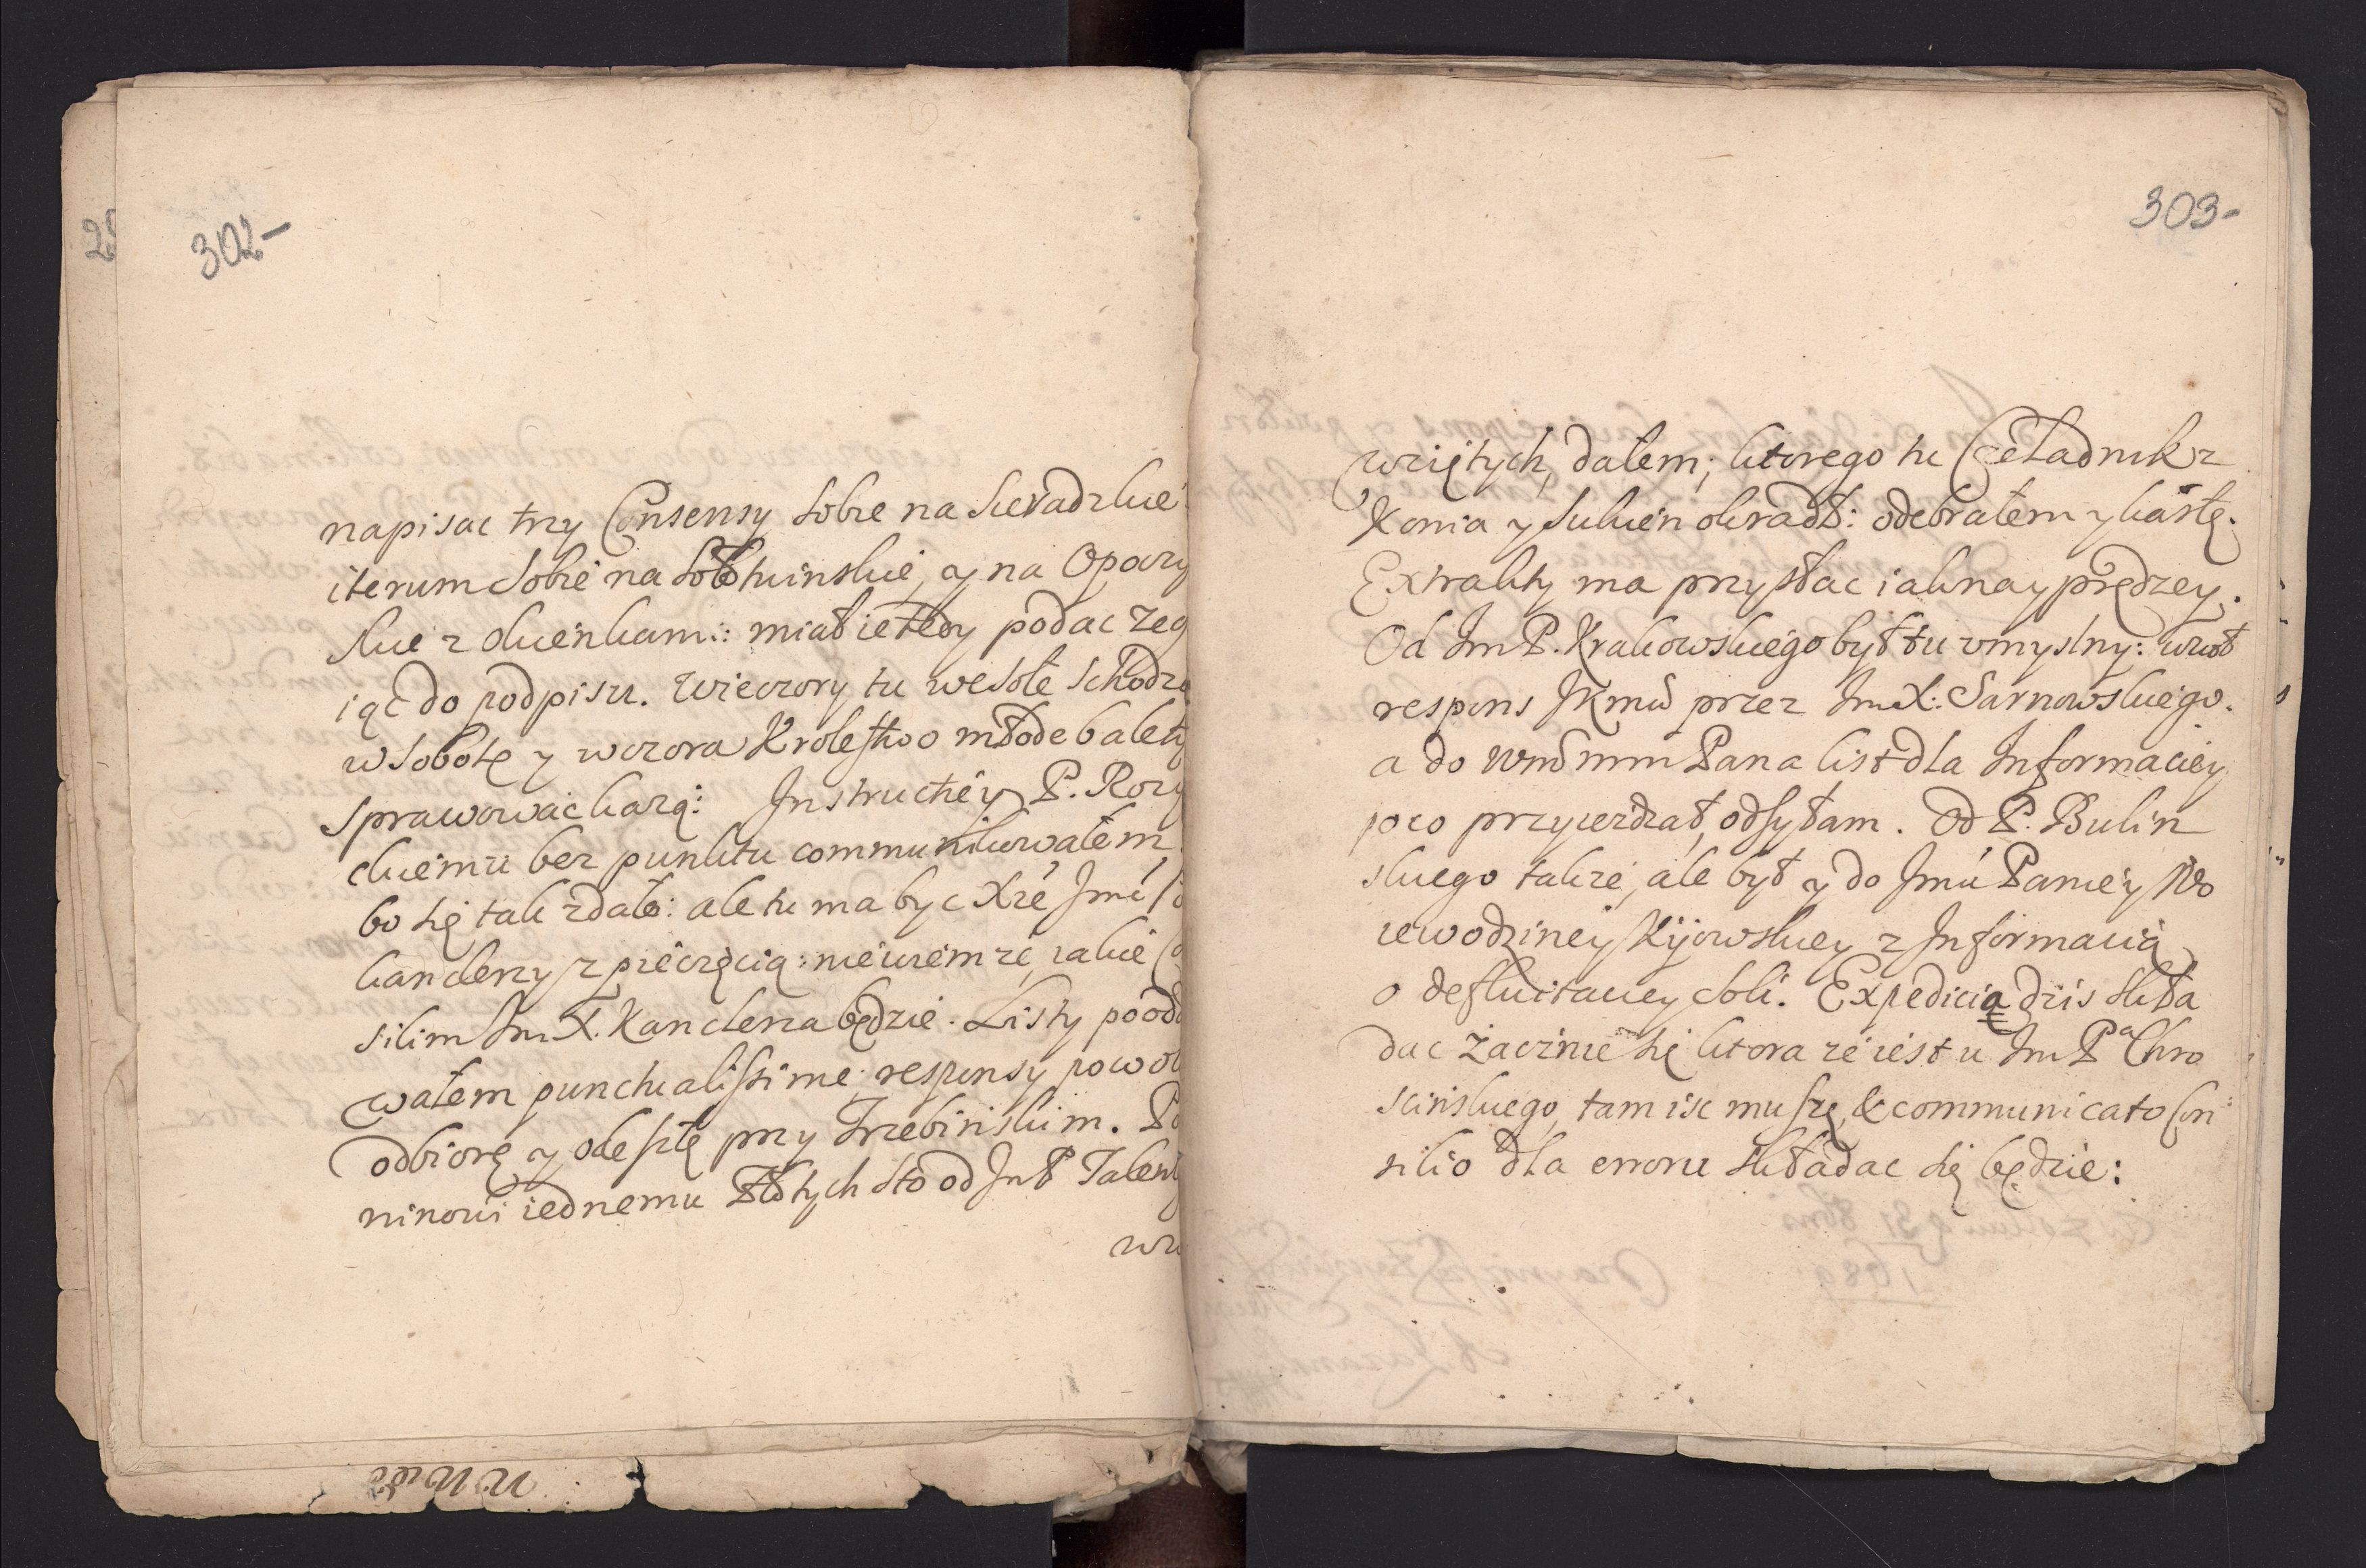 302-
napisac trzy Consensy sobie na Sieradzkie
iterum sobie na Sołtwinskie, y na Opoczy
skie z okienkami: miał ie tedy podac zeg
iąc do podpisu. Wieczory tu wesołe schodzą
w Sobotę y wczora Krolestwo młode balety
sprawowac każą: Instructiey P. Rozy
ckiemu bez punktu communikowałem
bo się tak zdało: ale tu ma byc Xże Jmć
kanclerzy z pieczęcią: niewiem ze iakie Co
silim Jm X. Kanclerza będzie. Listy poodd
wałem punctualissime responsy powoli
odbiorę y odeszlę przy Trzebinskim. Po
ninowi iednemu Złotych sto od Jm P Talenty
wzi
303-
wziętych, dałem; ktorego tu Czeladnik z
Konia y sukien okradł: odebrałem y kartę.
Extrakty ma przysłac iaknayprędzey.
Od Jm P. Krakowskiego był tu umyslny: wziął
respons JKmci przez Jm X: Sarnowskiego.
a do Wmć mm Pana list dla Informaciey
poco przyiezdzał, odsyłam. Od P. Bulin
skiego takze, ale był y do Jmci Paniey Wo
iewodziney Kijowskiey z Informacią
o defluitaciey soli. Expedicią dzis skła
dac zacznie się ktora ze iest u Jm Pa Chro
scinskiego, tam isc muszę, & communicato con
silio dla erroru składac się będzie: